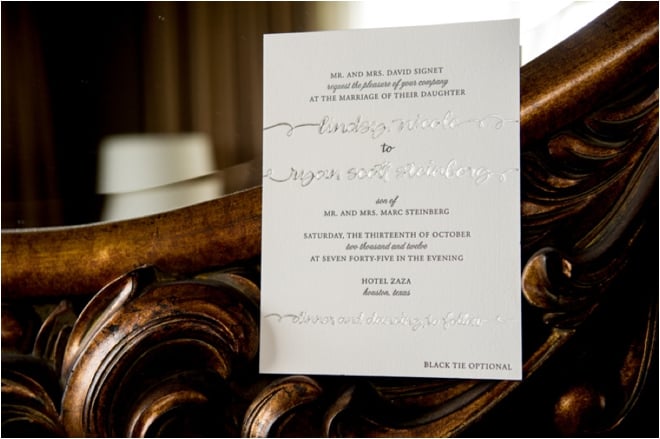 MR. AND MRS. DAVID SIGNET
request the pleasure of your company
AT THE MARRIAGE OF THEIR DAUGHTER
lindsey nicole
to
ryan scott steinberg
son of
MR. AND MRS. MARC STEINBERG
SATURDAY, THE THIRTEENTH OF OCTOBER
two thousand and twelve
AT SEVEN FORTY-FIVE IN THE EVENING
HOTEL ZAZA
houston, texas
dinner and dancing to follow
BLACK TIE OPTIONAL